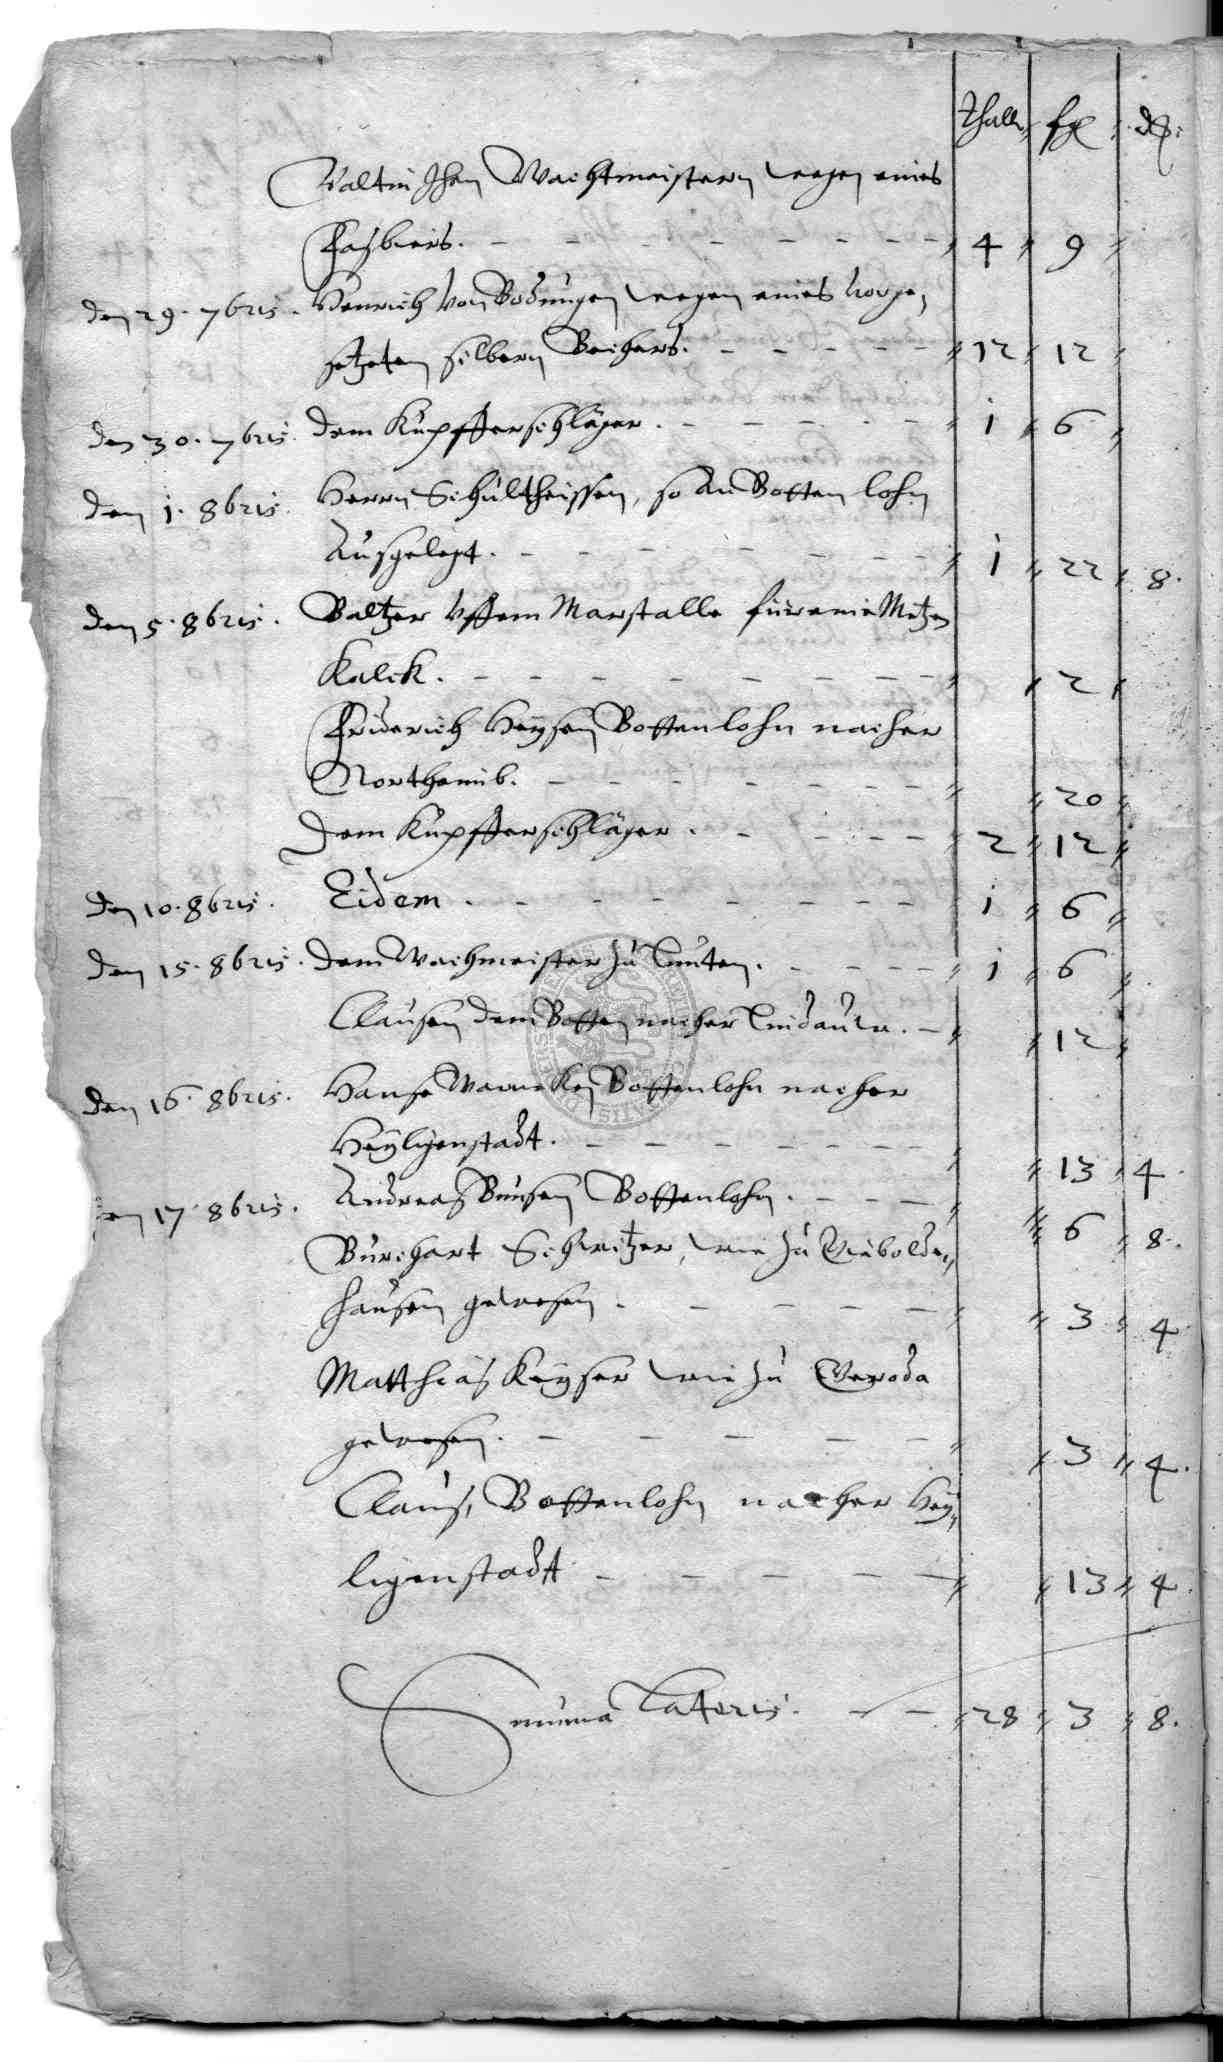 Thall. fgl. dß.
Valtin Ihen Wachtmeistern wegen eines
Faßbiers. 4 9
den 29. 7bris. Henrich Von Bodungen wegen eines Vorge,
setzeten silbern Bechers. 12 12
den 30. 7bris. dem Kupfferschläger. 1 6
den 1. 8bris. Herrn Schultheissen, so an Botten lohn
Ausgelegt. 1 22 8.
den 5. 8bris. Baltzer Uffem Marstalle für eine Metzen
Kalck. 2
Friderich Heysen Bottenlohn nacher
Northeimb. 20
dem Kupfferschläger. 2 12
den 10. 8bris. Eidem. 1 6
den 15. 8bris. dem Wachmeister zu 1 6
Clausen dem Botten nacher Lindauw. 12
den 16. 8bris. Hanse Warneken Bottenlohn nacher
Heyligenstadt. 13 4
den 17. 8bris. Andreas Bunsen Bottenlohn. 6 8.
Burchart Schweitzer, wie zu Giebolde,
hausen gewesen. 3 4
Matthias Keyser wie zu
gewesen. 3 4.
Claus, Bottenlohn nacher Hey,
ligenstadt 13 4.
Summa Lateris. 28 3 8.